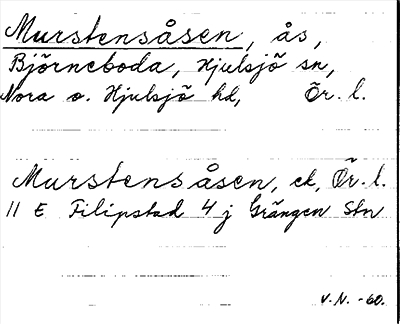 Murstensåsen, ås,
Björneboda, Hjulsjö sn,
Nora o. Hjulsjö hd, Ör. l.
Murstensåsen, ek, Ör. l.
11 E Filipstad 4 j Grängen Stn
V.N. -60.